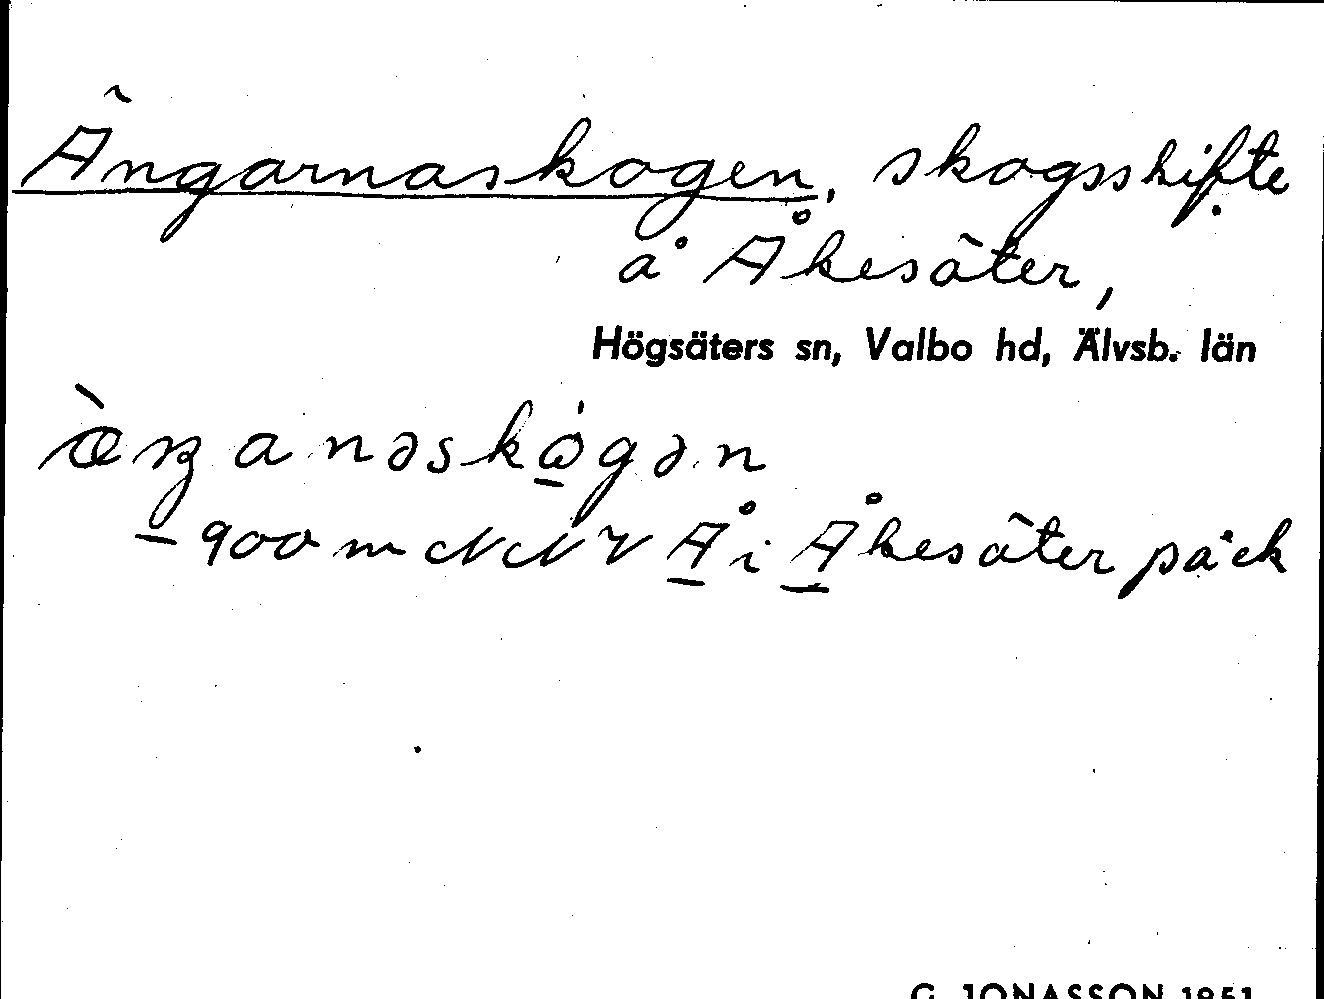 Ängarnaskogen, skogsskifte
å Åkesäter,
Högsäters sn, Valbo hd, Älvsb. län
æ̀ŋanəskωgən
900 m NNV Å i Åkesäter på ek
G. JONASSON 1951